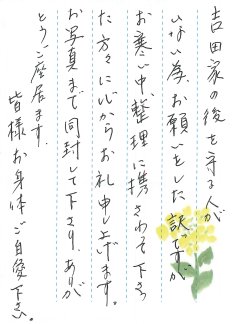 吉田家の後を守る人が
いない為、お願いをした訳ですが
お寒い中、整理に携さわって下さっ
た方々に心からお礼申し上げます。
お写真まで同封して下さり、ありが
とうご座居ます。
皆様お身体ご自愛下さい。